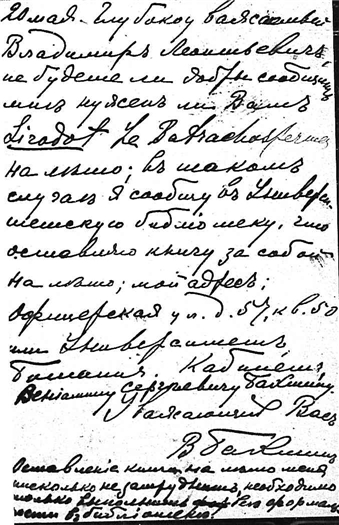 20 мая. Глубокоуважаемый
Владимиръ Леонтьевичъ,
не будете ли добры сообщить
мнѣ нуженъ ли Вамъ
Sirodot Le Batrachosperme
на лѣто; въ такомъ
случаѣ я сообщу въ Универси-
тетскую библіотеку, что
оставляю книгу за собой
на лѣто; мой адресъ:
Офицерская ул. д. 57, кв. 50
или Университетъ
Ботанич. Кабинетъ,
Веніамину Сергѣевичу
Уважающій Васъ
В
Оставленіе книги на лѣто меня
нисколько не затруднитъ, необходимо
только выполнить
ности въ библіотекѣ.